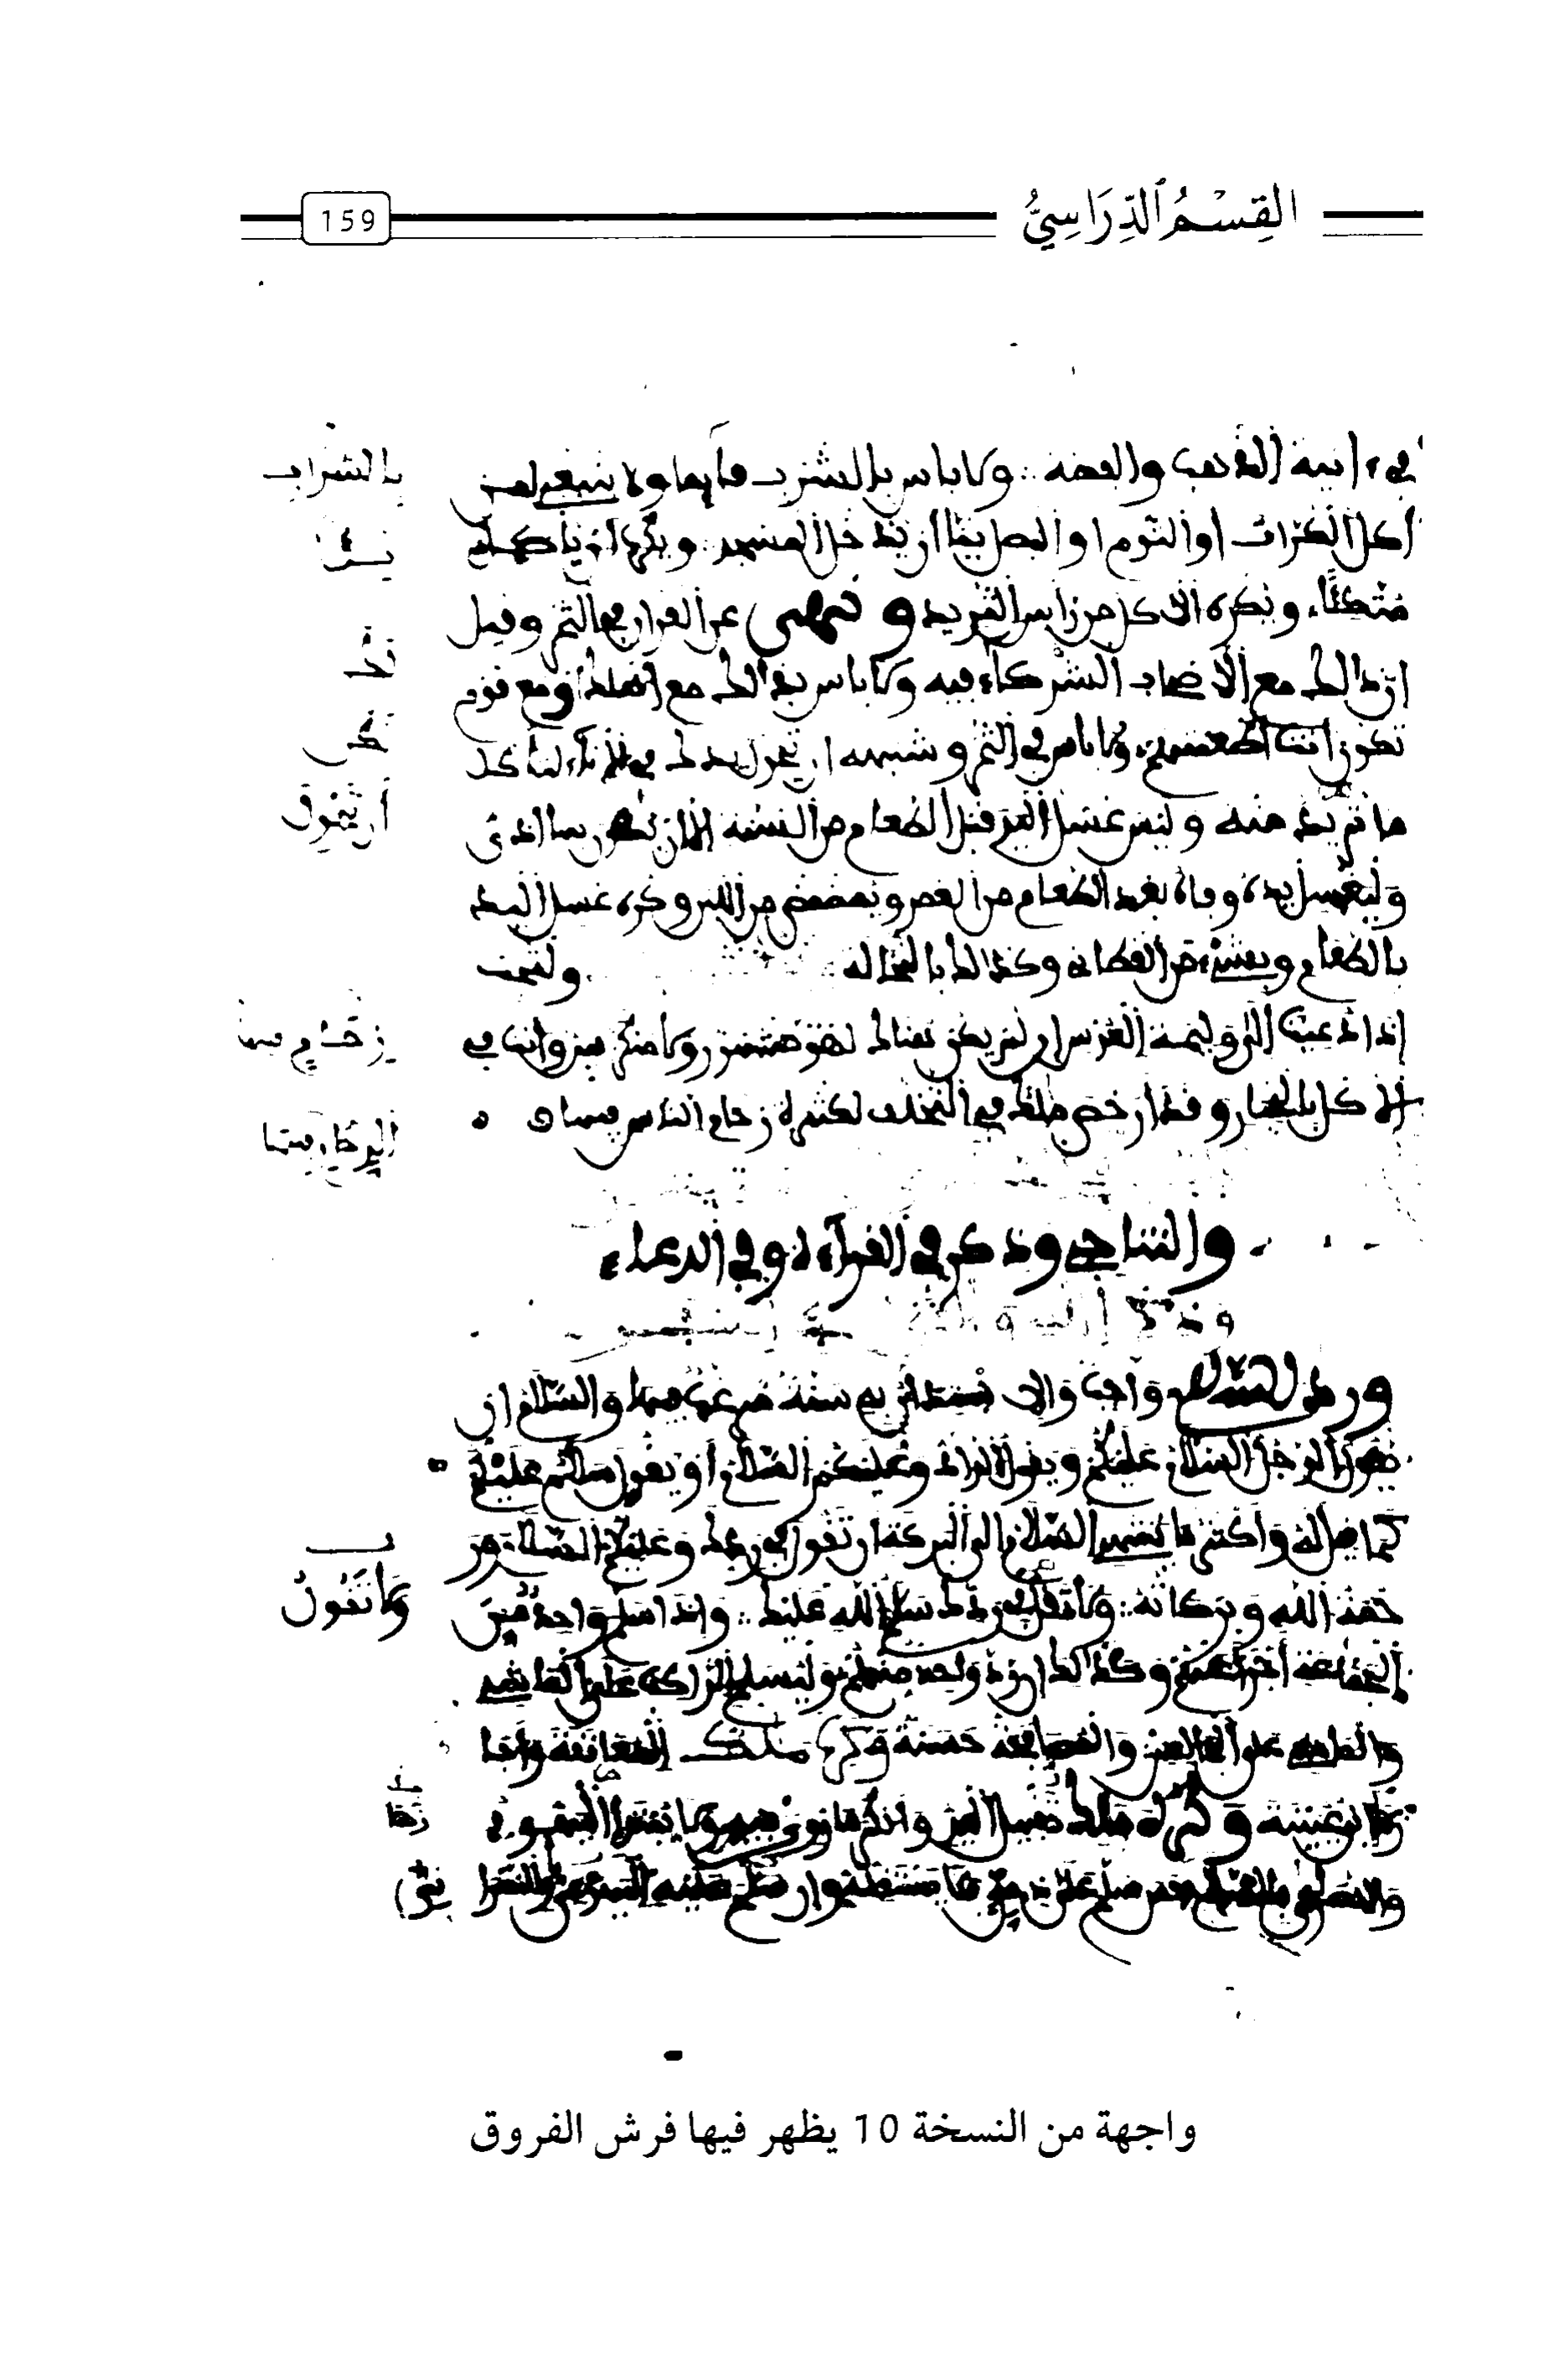 القِسْمُ الدِّرَاسِيُّ
159
في ءانية الذهب والفضة ولا باس بالشرب قايما ولا ينبغي لمن
بالشراب
أكل الكراث أو الثوم أو البصل نيا أن يدخل المسجد ويكره أن ياكل
متكئا ويكره الاكل من راس الثريد ونهى عن القران في التمر وقيل
إن ذالك مع الأصحاب الشركاء فيه ولا باس بذالك مع أهلك أو مع قوم
تكون أنت أطعمتهم ولا باس في التمر وشبهه أن تجول يدك في الإناء لتأكل
ما تريد منه وليس غسل اليد قبل الطعام من السنة إلا أن يكون بها أذى
وليغسل يده وفاه بعد الطعام من الغمر ويمضمض من اللبن وكره غسل اليد
بالطعام وبشيء من القطاني وكذالك بالنخالة ولتجب
إذا دعيت إلى وليمة العرس إن لم يكن هناك لهو مشهور ولا منكر بين وأنت في
الاكل بالخيار وقد أرخص مالك في التخلف لكثرة زحام الناس فيها
والتناجي وذكر في القرآءة وفي الدعاء
ورد السلام واجب والابتداء به سنة مرغب فيها والسلام أن
يقول الرجل السلام عليكم ويقول الراد وعليكم السلام أو يقول سلام عليكم
كما قيل له وأكثر ما ينتهي السلام إلى البركة أن تقول في ردك وعليكم السلام ور
حمة الله وبركاته ولا تقل في ردك سلام الله عليك وإذا سلم واحد من
ولا تقول
الجماعة أجزأ عنهم وكذالك إن رد واحد منهم وليسلم الراكب على الماشي
والماشي على الجالس والمصافحة حسنة وكره مالك المعانقة وأجا
زها ابن عيينة وكره مالك تقبيل اليد وأنكر ما روي فيه ولا تبتدأ اليهود
والنصارى بالسلام فمن سلم على ذمي فلا يستقيله وإن سلم عليه اليهودي أو النصرا
ني
واجهة من النسخة 10 يظهر فيها فرش الفروق